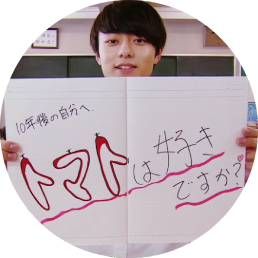 10年後の自分へ
トマトは好き
ですか?